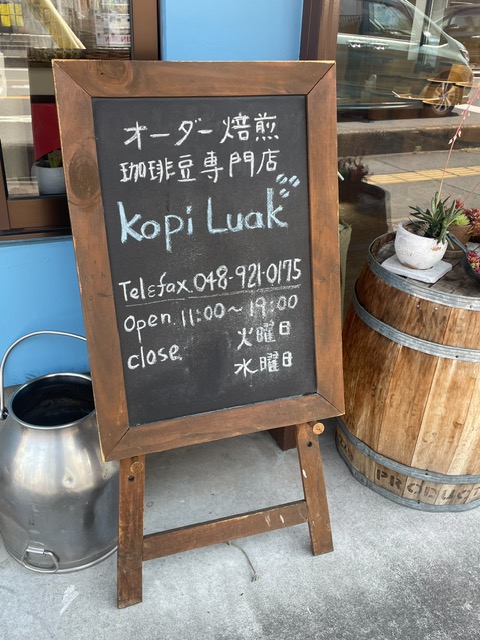 オーダー焙煎
珈琲豆専門店
kopi Luak
Tel&fax.048-921-0175
Open. 11:00〜19:00
close. 火曜日
水曜日
PRODUCT